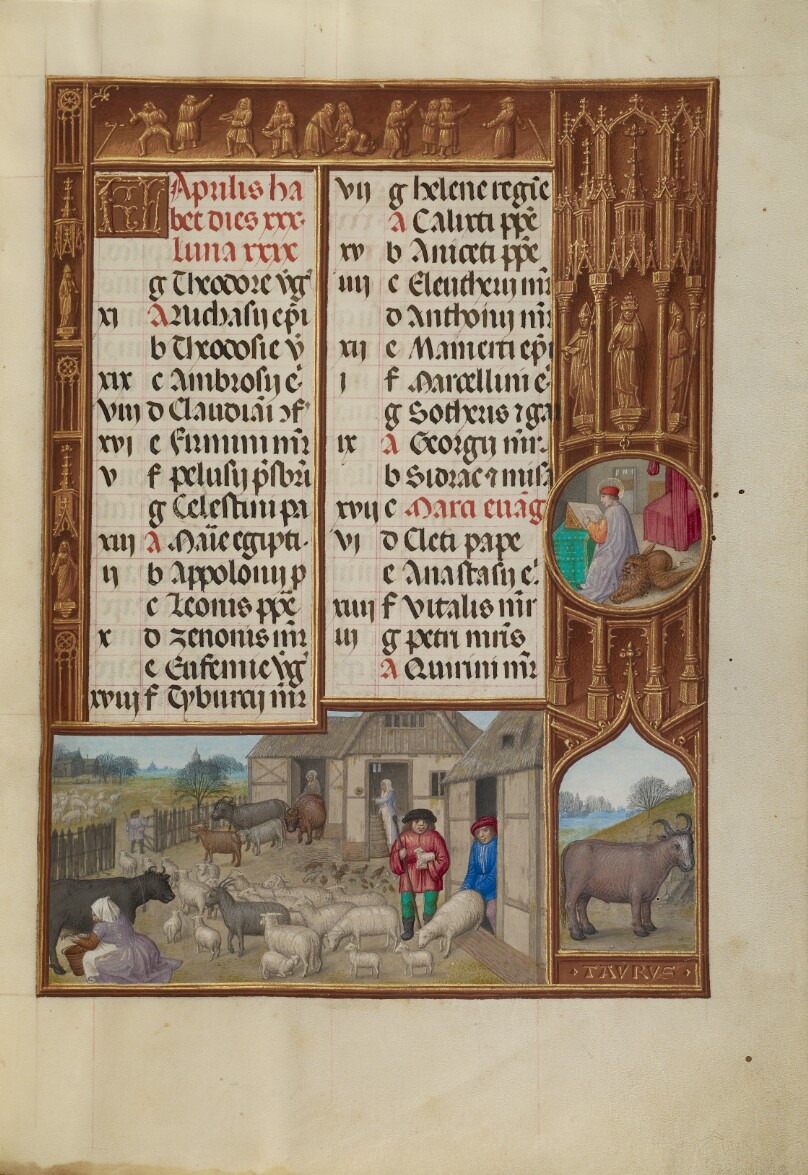 KL Aprilis ha
bet dies xxx.
luna xxix
g Theodore v̄g
xi A Nichasij ep̄i
b Theodosie v̄
xix c Ambrosij e.
viii d Claudiāi ɔf
xvi e Firmini mr̄
v f pelusij p̄sbri
g Celestini pa
xiii A Marie egipti.
ii b Appolonij p
c Leonis pp̄e
x d zenonis mr̄
e Eufemie v̄g
xviii f Tyburcij mr̄
vii g helene regīe
A Calixti pp̄e
xv b Aniceti pp̄e
iiii c Eleutherij mr̄
d Anthonij mr̄
xii e Mamerti ep̄i
i f Marcellini e.
g Sotheris ⁊ ga
ix A Georgij mr̄.
b Sidrac ⁊ misa
xvii c Marci euāg
vi d Cleti pape
e Anastasij e.
xiiii f vitalis mr̄
iii g petri mr̄is
A Quirini mr̄
TAVRVS